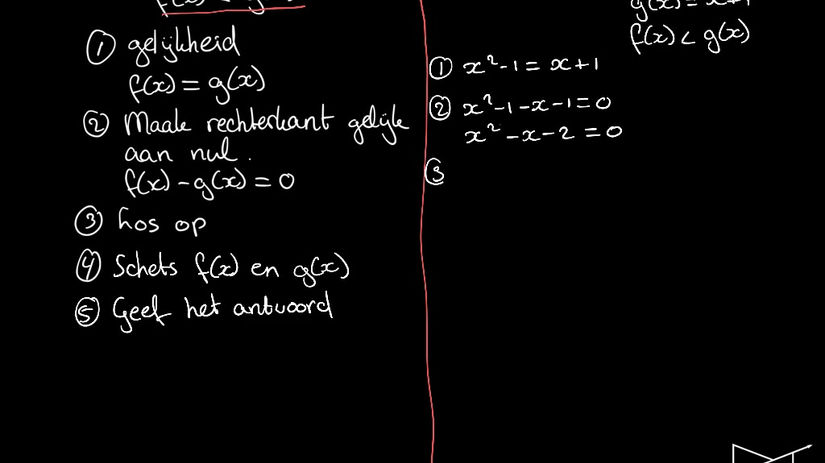 ① gelijkheid
f(x) = g(x)
② Maak rechterkant gelijk
aan nul.
f(x) - g(x) = 0
③ Los op
④ Schets f(x) en g(x)
⑤ Geef het antwoord
f(x) < g(x)
① x² - 1 = x + 1
② x² - 1 - x - 1 = 0
x² - x - 2 = 0
③